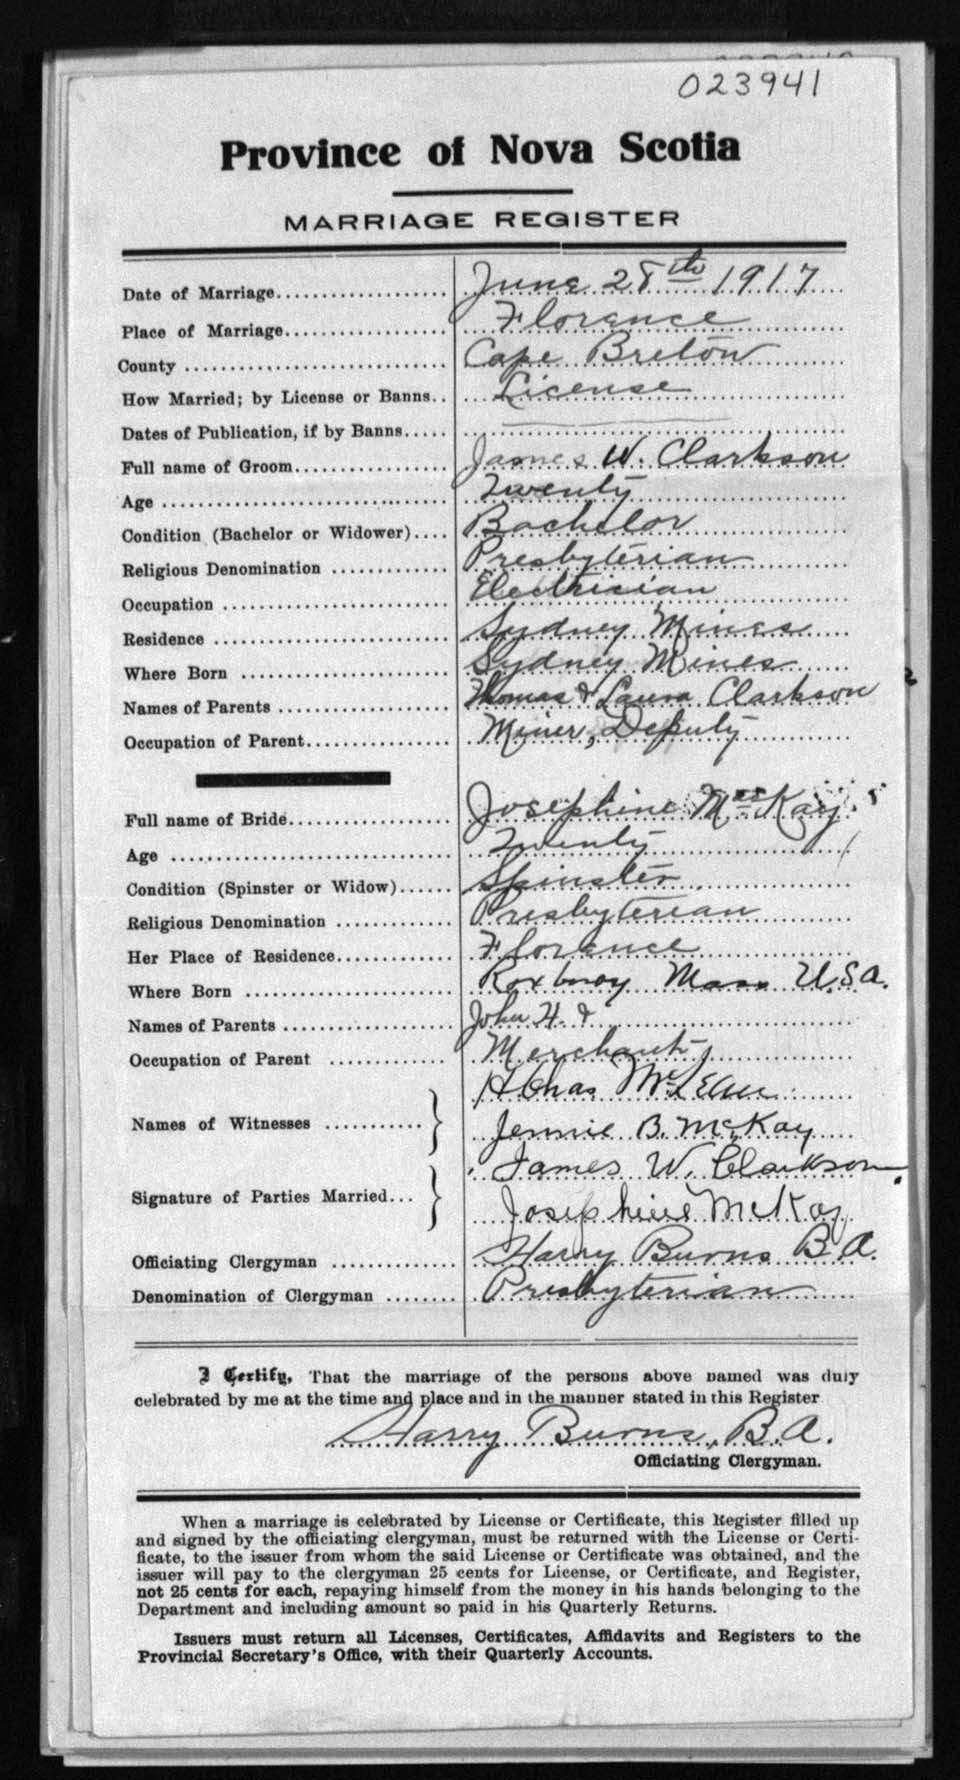 023941
Province of Nova Scotia
MARRIAGE REGISTER
Date of Marriage.................... June 28th 1917
Place of Marriage................... Florence
County ............................. Cape Breton
How Married; by License or Banns.. License
Dates of Publication, if by Banns.....
Full name of Groom.................. James W. Clarkson
Age ................................ Twenty
Condition (Bachelor or Widower).... Bachelor
Religious Denomination ............. Presbyterian
Occupation ......................... Electrician
Residence .......................... Sydney Mines
Where Born ......................... Sydney Mines
Names of Parents ................... Thomas & Laura Clarkson
Occupation of Parent................ Miner, Deputy
Full name of Bride.................. Josephine MacKay
Age ................................ Twenty
Condition (Spinster or Widow)...... Spinster
Religious Denomination ............. Presbyterian
Her Place of Residence............. Florence
Where Born ......................... Roxbury Mass U.S.A.
Names of Parents ................... John H. &
Occupation of Parent ............... Merchant
Chas McLean
Names of Witnesses ...........
Jennie B. McKay
James W. Clarkson
Signature of Parties Married...
Josephine McKay
Officiating Clergyman .............. Harry Burns B.A.
Denomination of Clergyman ........ Presbyterian
I Certify, That the marriage of the persons above named was duly
celebrated by me at the time and place and in the manner stated in this Register
Harry Burns, B.A.
Officiating Clergyman.
When a marriage is celebrated by License or Certificate, this Register filled up
and signed by the officiating clergyman, must be returned with the License or Certi-
ficate, to the issuer from whom the said License or Certificate was obtained, and the
issuer will pay to the clergyman 25 cents for License, or Certificate, and Register,
not 25 cents for each, repaying himself from the money in his hands belonging to the
Department and including amount so paid in his Quarterly Returns.
Issuers must return all Licenses, Certificates, Affidavits and Registers to the
Provincial Secretary's Office, with their Quarterly Accounts.